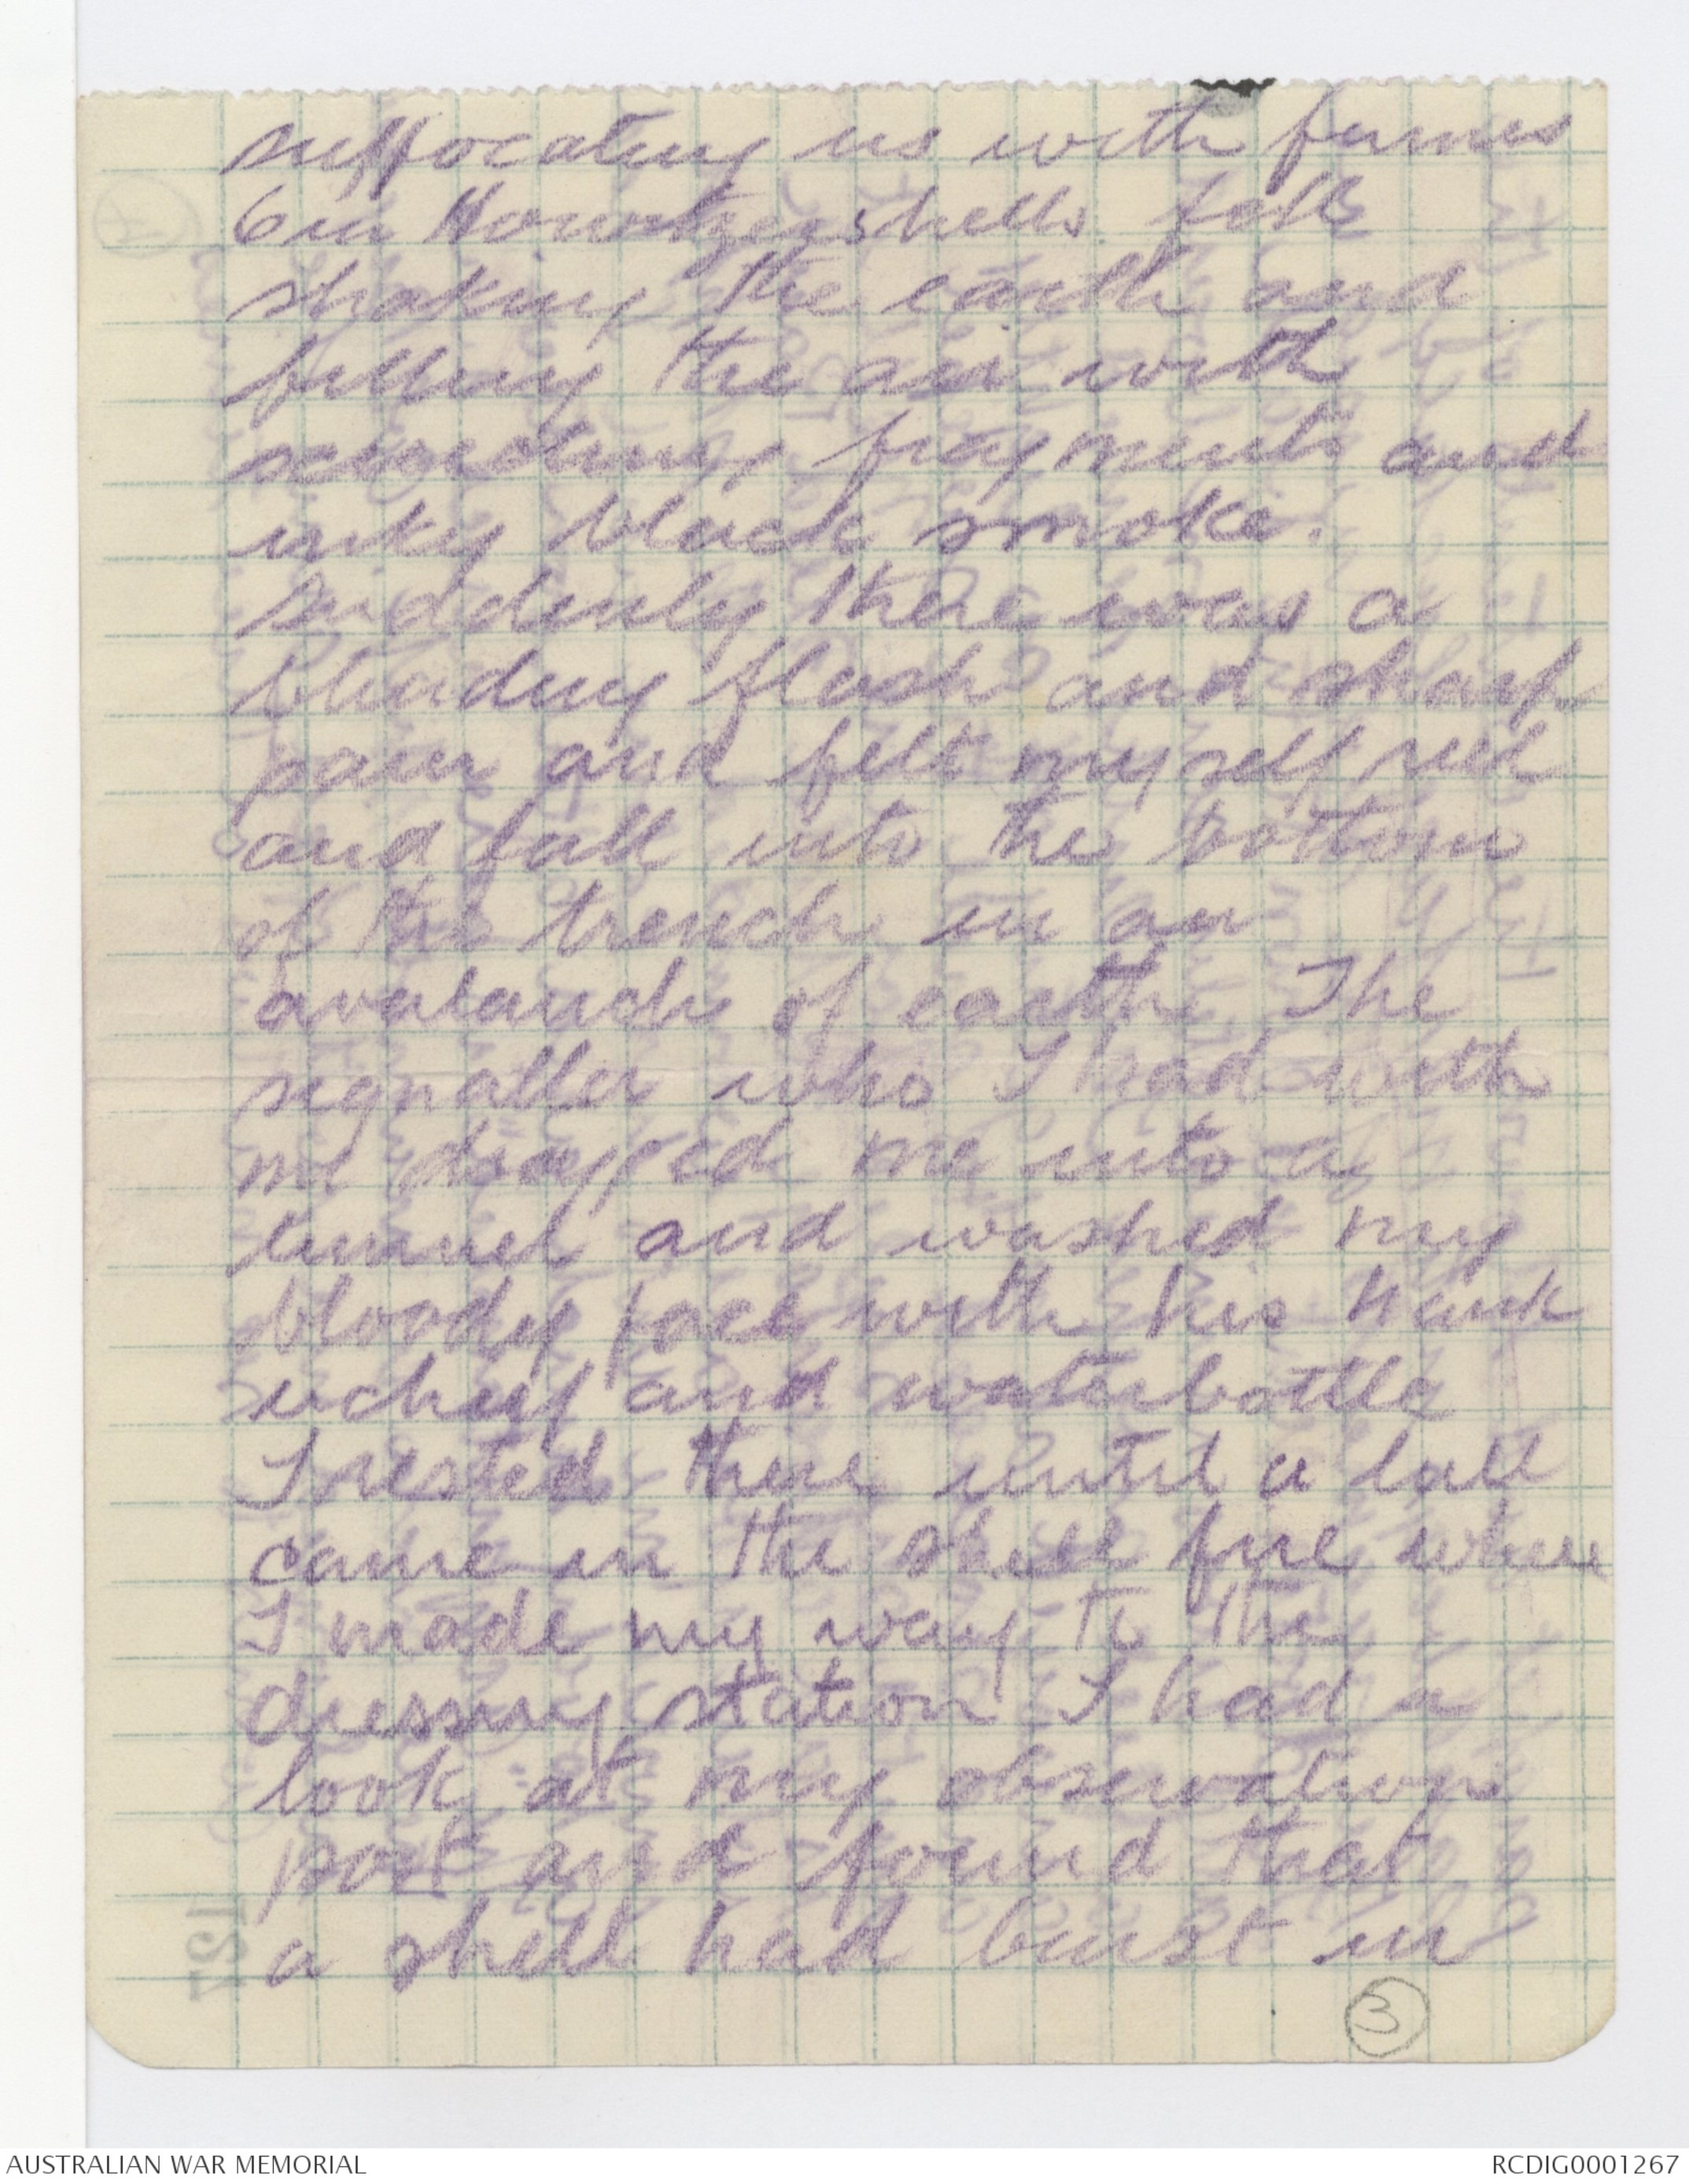 suffocating us with fumes
6in Howitzer shells fell
shaking the earth and
filling the air with
fragments and
inky black smoke.
Suddenly there was a
blinding flash and sharp
pain and felt myself reel
and fall into the bottom
of the trench in an
avalanche of earth The
signaller who I had with
me dragged me into a
tunnel and washed my
bloody face with his hank
erchief and waterbottle
I rested there until a lull
came in the shell fire when
I made my way to the
dressing station I had a
look at my observation
post and found that
a shell had burst in
3
AUSTRALIAN WAR MEMORIAL
RCDIG0001267